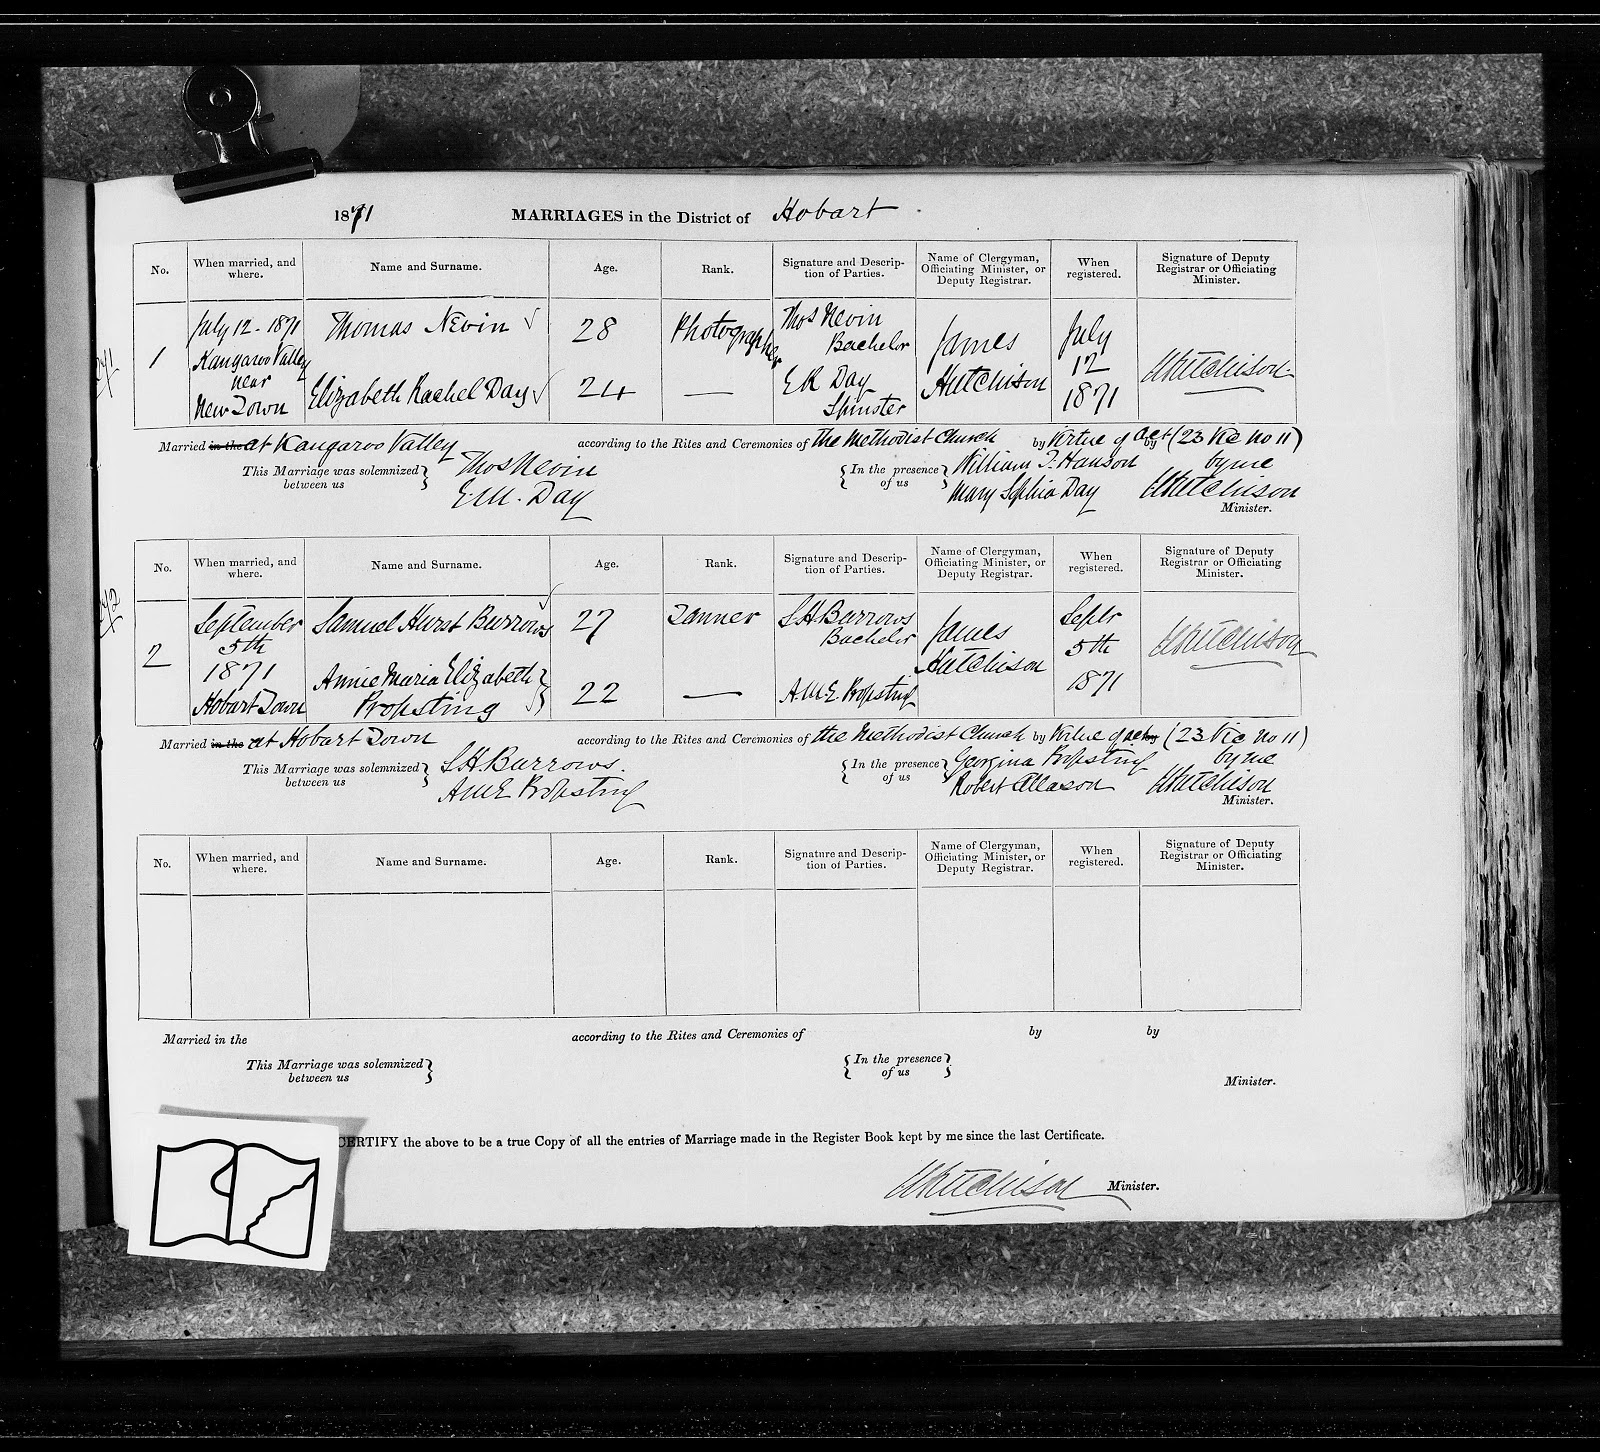 1871 MARRIAGES in the District of Hobart
No. When married, and where. Name and Surname. Age. Rank. Signature and Description of Parties. Name of Clergyman, Officiating Minister, or Deputy Registrar. When registered. Signature of Deputy Registrar or Officiating Minister.
1
July 12 - 1871
Kangaroo Valley
near
New Town
Thomas Nevin
Elizabeth Rachel Day
28
24
Photographer
—
Thos Nevin
Bachelor
E R Day
Spinster
James
Hutchison
July
12
1871
Hutchison
Married in the at Kangaroo Valley according to the Rites and Ceremonies of the Methodist Church by Virtue of Act by (23 Vic no 11)
This Marriage was solemnized between us
Thos Nevin
Day
In the presence of us
William Hanson
Mary Sophia Day
by me
Hutchison
Minister.
No. When married, and where. Name and Surname. Age. Rank. Signature and Description of Parties. Name of Clergyman, Officiating Minister, or Deputy Registrar. When registered. Signature of Deputy Registrar or Officiating Minister.
2
September
5th
1871
Hobart Town
Samuel Hurst Burrows
Annie Maria Elizabeth
Propsting
27
22
Tanner
—
S.H. Burrows
Bachelor
A.M.E. Propsting
James
Hutchison
Septr
5th
1871
Hutchison
Married in the at Hobart Town according to the Rites and Ceremonies of the Methodist Church by Virtue of act (23 Vic no 11)
This Marriage was solemnized between us
S.H. Burrows.
A M E Propsting
In the presence of us
Georgina Propsting
Robert Allason
by me
Hutchison
Minister.
No. When married, and where. Name and Surname. Age. Rank. Signature and Description of Parties. Name of Clergyman, Officiating Minister, or Deputy Registrar. When registered. Signature of Deputy Registrar or Officiating Minister.
Married in the according to the Rites and Ceremonies of by by
This Marriage was solemnized between us
In the presence of us
Minister.
CERTIFY the above to be a true Copy of all the entries of Marriage made in the Register Book kept by me since the last Certificate.
Hutchison Minister.